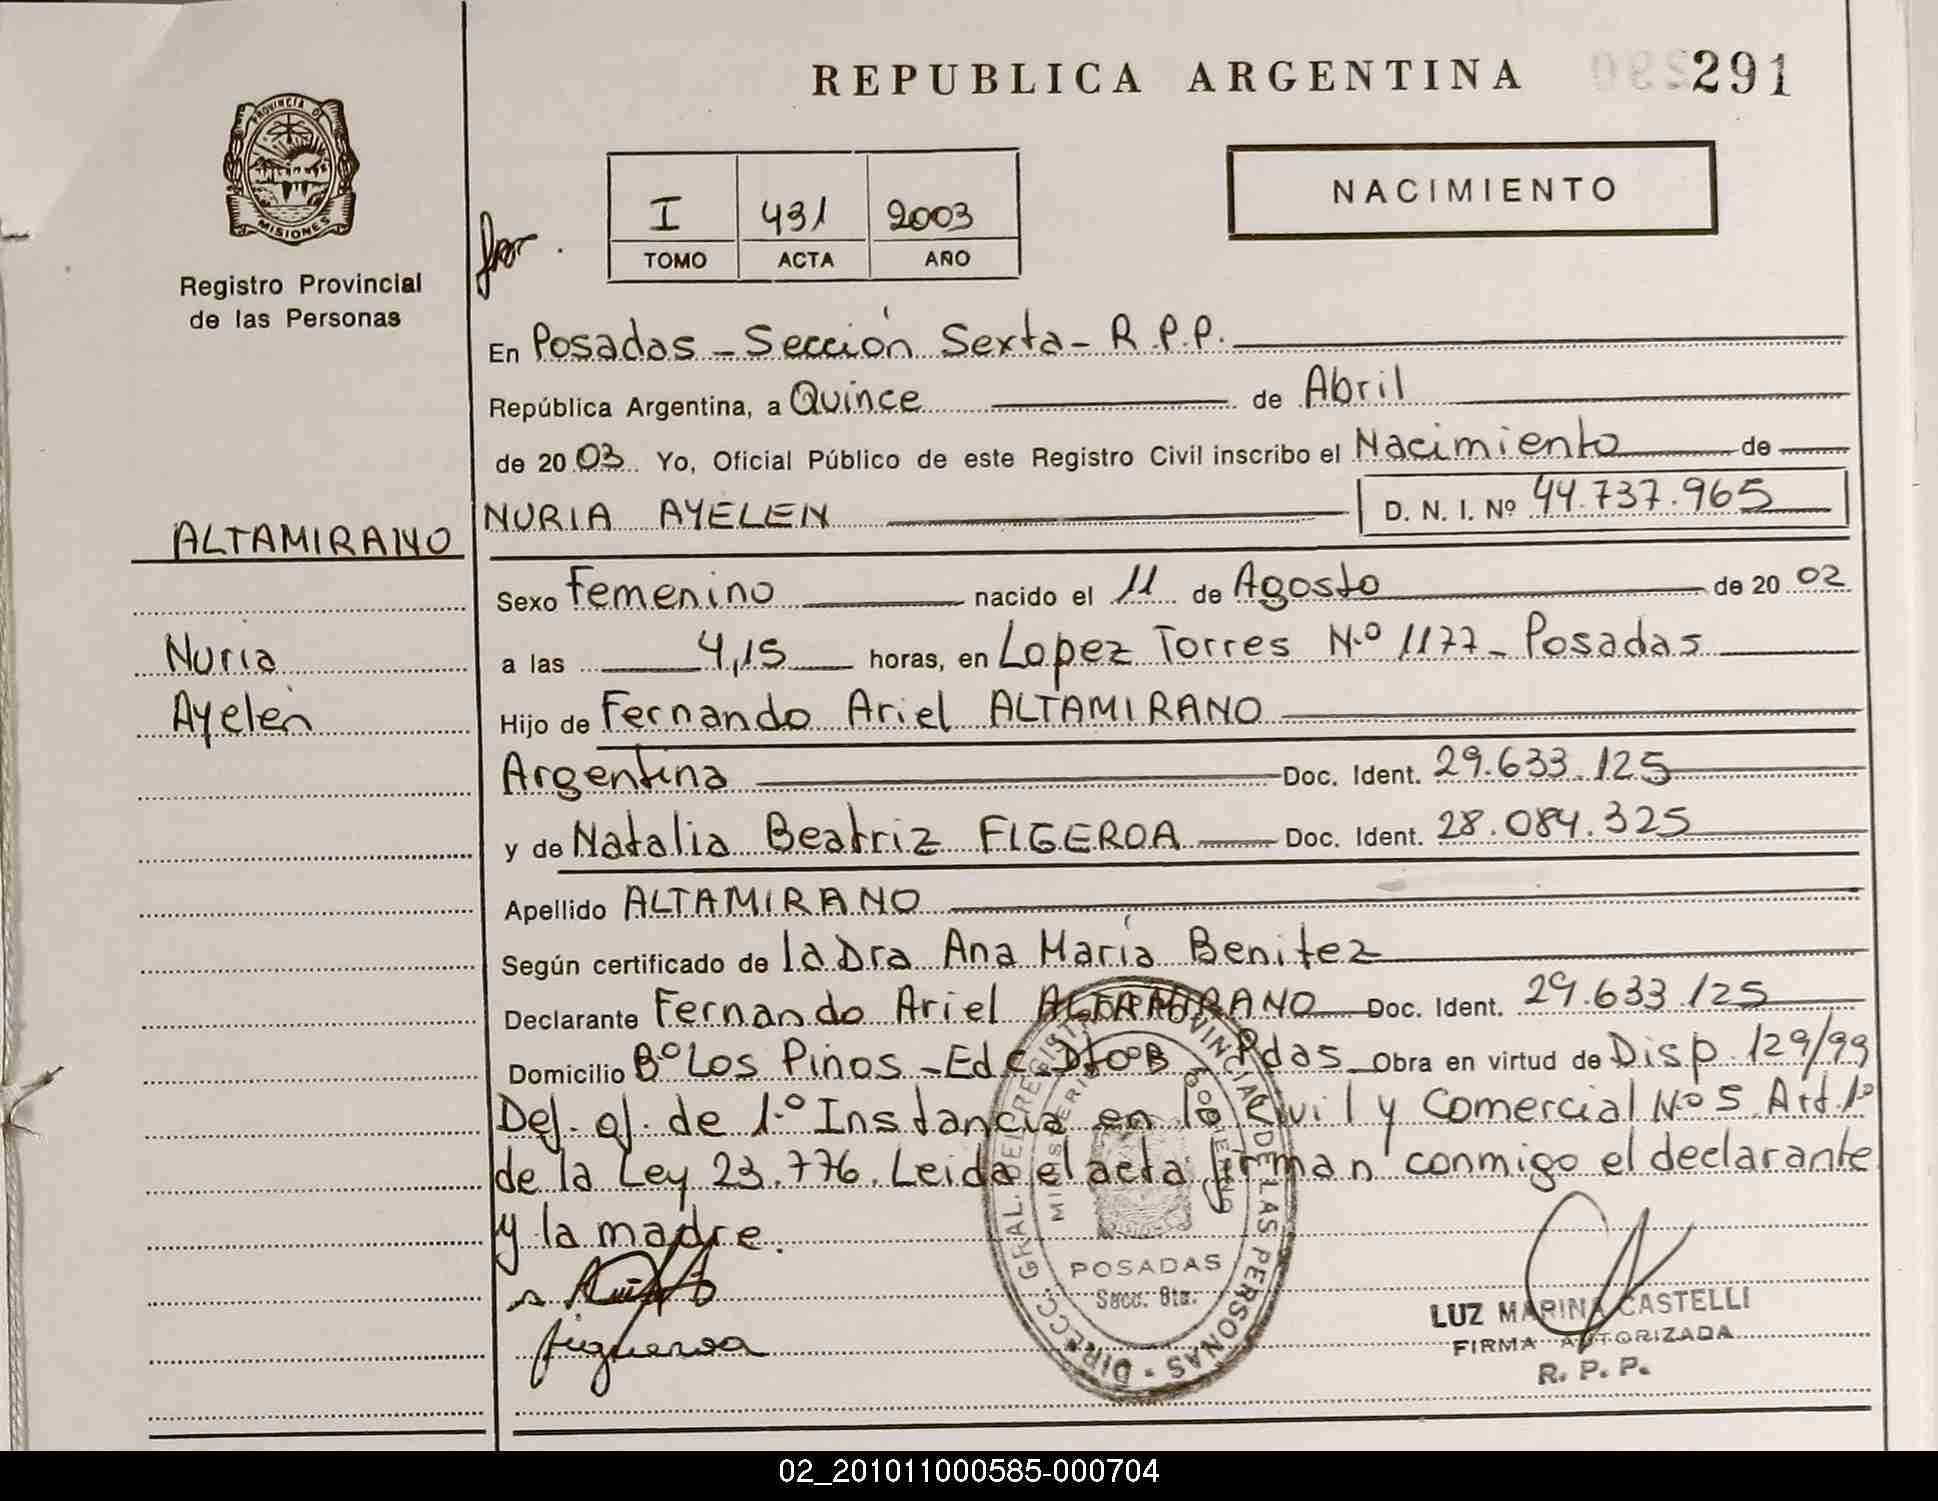 REPUBLICA ARGENTINA 291
PROVINCIA DE
MISIONES
Registro Provincial
de las Personas
I 431 2003
TOMO ACTA AÑO
NACIMIENTO
En Posadas - Sección Sexta - R.P.P.
República Argentina, a Quince de Abril
de 2003 Yo, Oficial Público de este Registro Civil inscribo el Nacimiento de
ALTAMIRANO
NURIA AYELEN D. N. I. Nº 44.737.965
Sexo Femenino nacido el 11 de Agosto de 2002
Nuria
Ayelén
a las 4,15 horas, en Lopez Torres N.º 1177 - Posadas
Hijo de Fernando Ariel ALTAMIRANO
Argentina Doc. Ident. 29.633.125
y de Natalia Beatriz FIGEROA Doc. Ident. 28.084.325
Apellido ALTAMIRANO
Según certificado de la Dra Ana María Benitez
Declarante Fernando Ariel ALTAMIRANO Doc. Ident. 29.633.125
Domicilio Bº Los Pinos - Ed C Dtoº B Pdas Obra en virtud de Disp. 129/99
Def. of. de 1.º Instancia en lo Civil y Comercial Nº 5 Art. 1º
de la Ley 23.776. Leida el acta firman conmigo el declarante
y la madre.
figueroa
DIRECC. GRAL. DEL REGISTRO PROVINCIAL DE LAS PERSONAS
MINISTERIO DE GOBIERNO
POSADAS
Secc. 6ta.
LUZ MARINA CASTELLI
FIRMA AUTORIZADA
R. P. P.
02_201011000585-000704